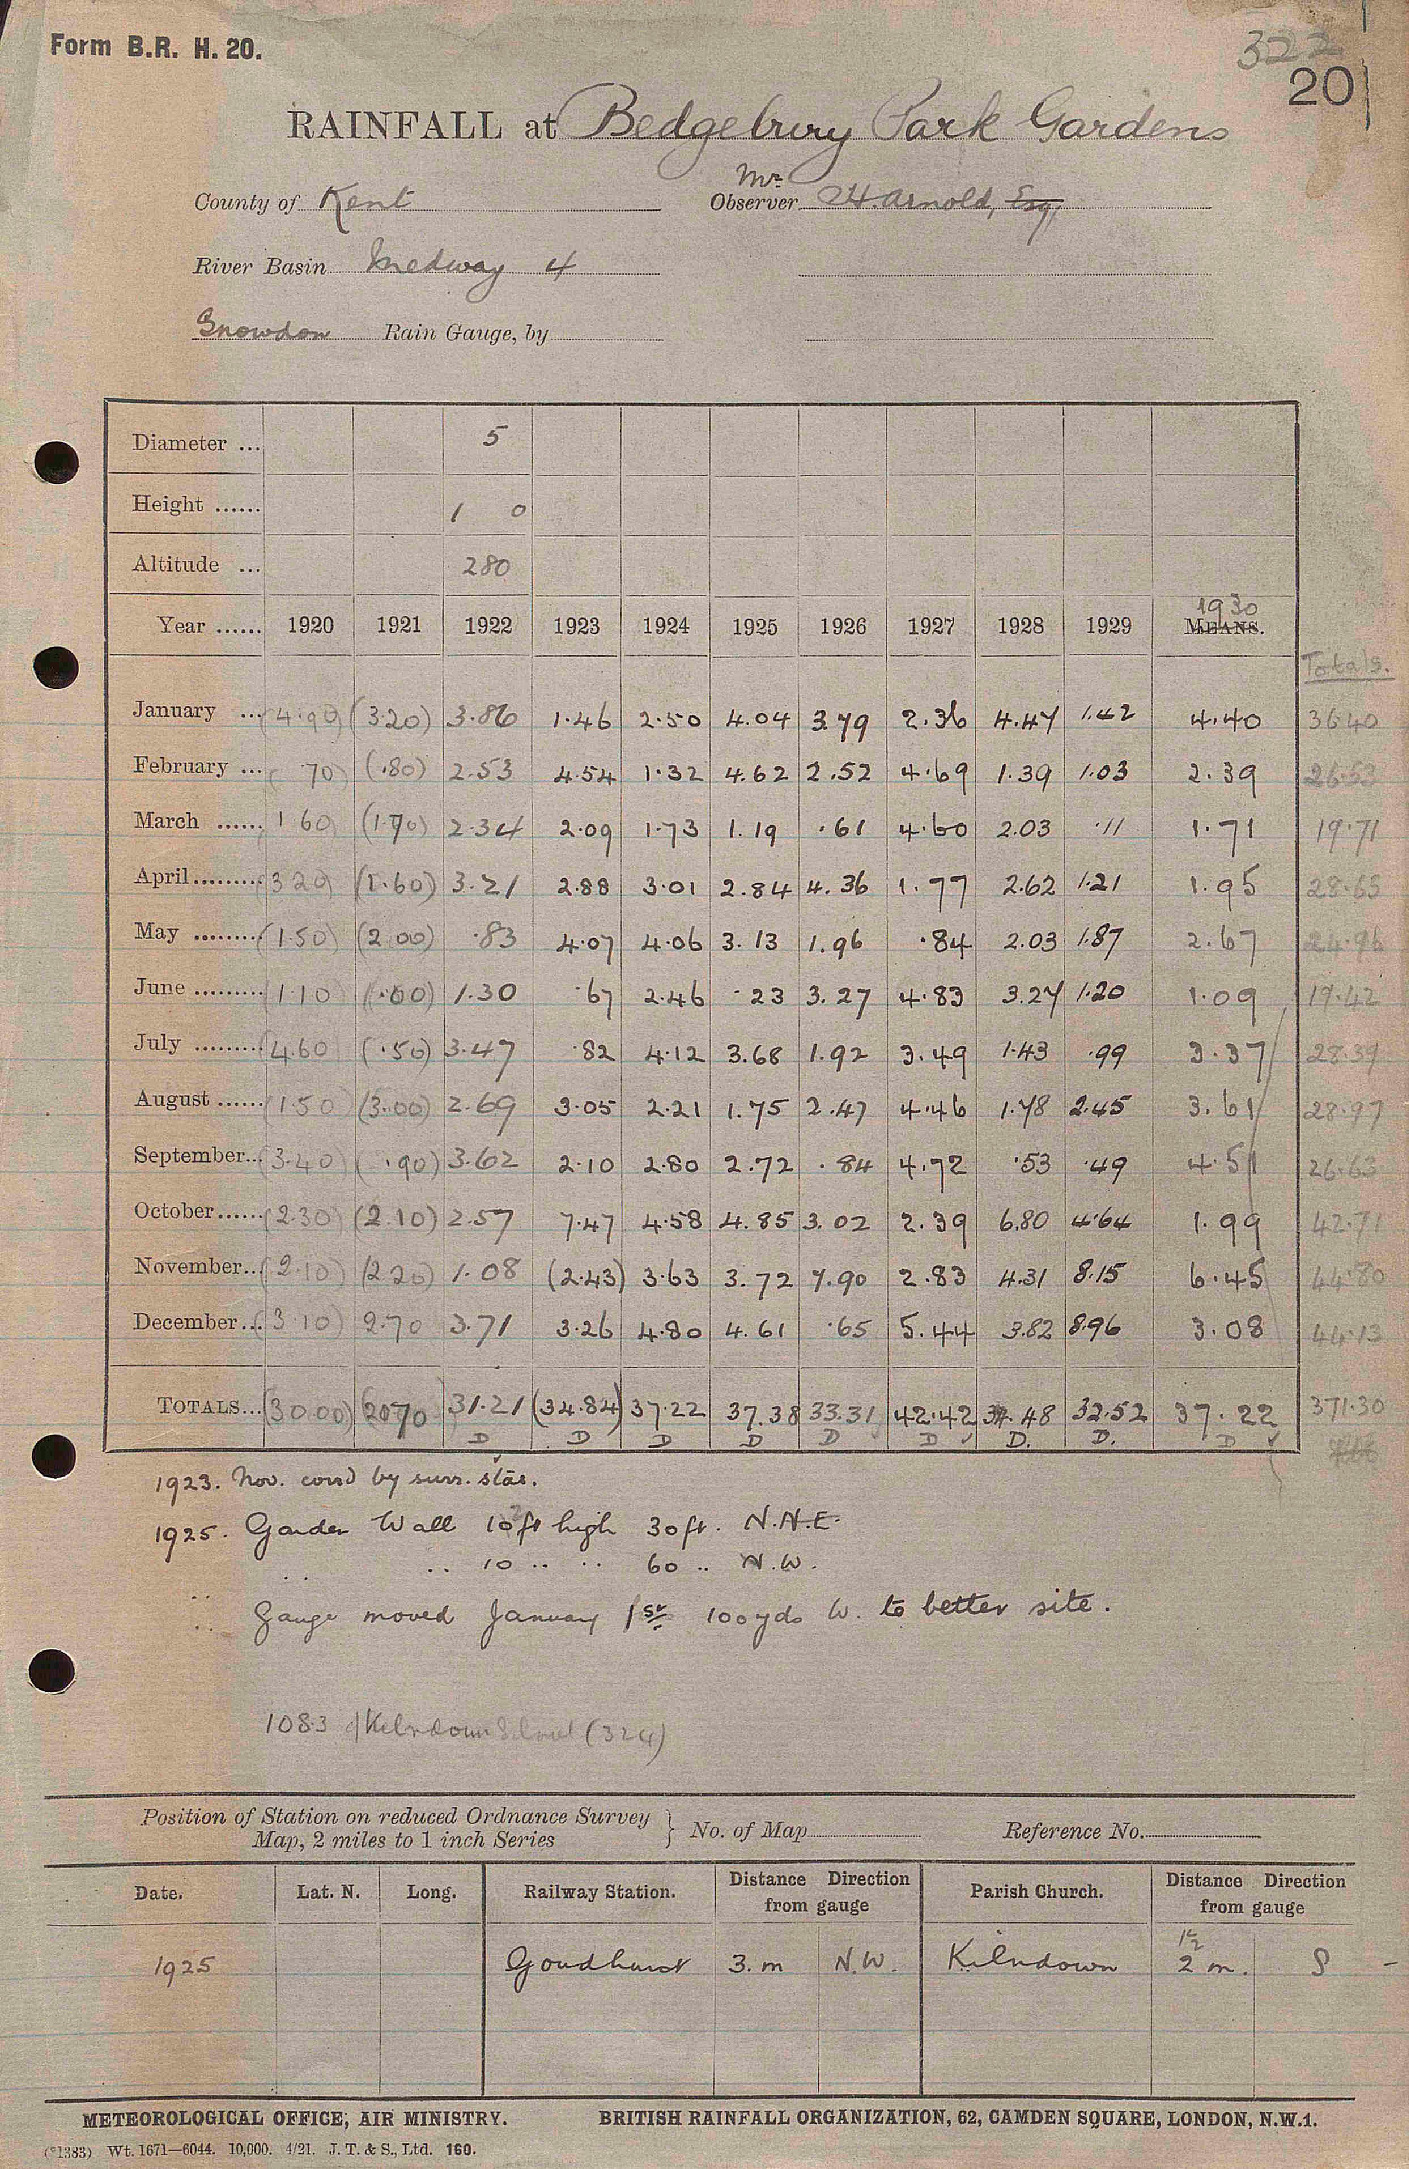 Form B.R. H. 20.
322
20
RAINFALL at Bedgebury Park Gardens
County of Kent
Mr.
Observer H. Arnold, Esq.
River Basin Medway 4
Snowdon Rain Gauge, by
Diameter ... 5
Height ...... 1 0
Altitude ... 280
1930
Year ...... 1920 1921 1922 1923 1924 1925 1926 1927 1928 1929 MEANS.
Totals.
January ... (4.90) (3.20) 3.86 1.46 2.50 4.04 3.79 2.36 4.47 1.42 4.40 36.40
February ... ( 70) (.80) 2.53 4.54 1.32 4.62 2.52 4.69 1.39 1.03 2.39 26.53
March ...... 1 60 (1.70) 2.34 2.09 1.73 1.19 .61 4.60 2.03 .11 1.71 19.71
April ......... (3 20) (1.60) 3.21 2.88 3.01 2.84 4.36 1.77 2.62 1.21 1.95 28.65
May ........ (1.50) (2 00) .83 4.07 4.06 3.13 1.96 .84 2.03 1.87 2.67 24.96
June ......... (1.10) (.00) 1.30 .67 2.46 .23 3.27 4.83 3.27 1.20 1.09 19.42
July ......... (4.60 (.50) 3.47 .82 4.12 3.68 1.92 3.49 1.43 .99 3.37 28.39
August ...... (1.50) (3.00) 2.69 3.05 2.21 1.75 2.47 4.46 1.78 2.45 3.61 28.97
September... (3.40) ( .90) 3.62 2.10 2.80 2.72 .84 4.72 .53 .49 4.51 26.63
October ...... (2.30) (2.10) 2.57 7.47 4.58 4.85 3.02 2.39 6.80 4.64 1.99 42.71
November... (2.10) (2 20) 1.08 (2.43) 3.63 3.72 7.90 2.83 4.31 8.15 6.45 44.80
December... (3 10) 2.70 3.71 3.26 4.80 4.61 .65 5.44 3.82 8.96 3.08 44.13
TOTALS... (30.00) (20 70 31.21 (34.84) 37.22 37.38 33.31 42.42 34.48 32.52 37.22 371.30
D D D D D D D. D. D
1923. Nov. corrd by surr. stas.
1925. Garden Wall 10 ft high 30 ft. N.N.E.
.. .. 10 .. .. 60 .. N.W.
.. Gauge moved January 1st 100 yds W. to better site.
1083 of Kilndown (324)
Position of Station on reduced Ordnance Survey
Map, 2 miles to 1 inch Series } No. of Map Reference No.
Date. Lat. N. Long. Railway Station. Distance Direction from gauge Parish Church. Distance Direction from gauge
1925 Goudhurst 3. m N.W. Kilndown 1½ 2 m. S
METEOROLOGICAL OFFICE, AIR MINISTRY. BRITISH RAINFALL ORGANIZATION, 62, CAMDEN SQUARE, LONDON, N.W.1.
(*1383) Wt. 1671—6044. 10,000. 4/21. J. T. & S., Ltd. 160.